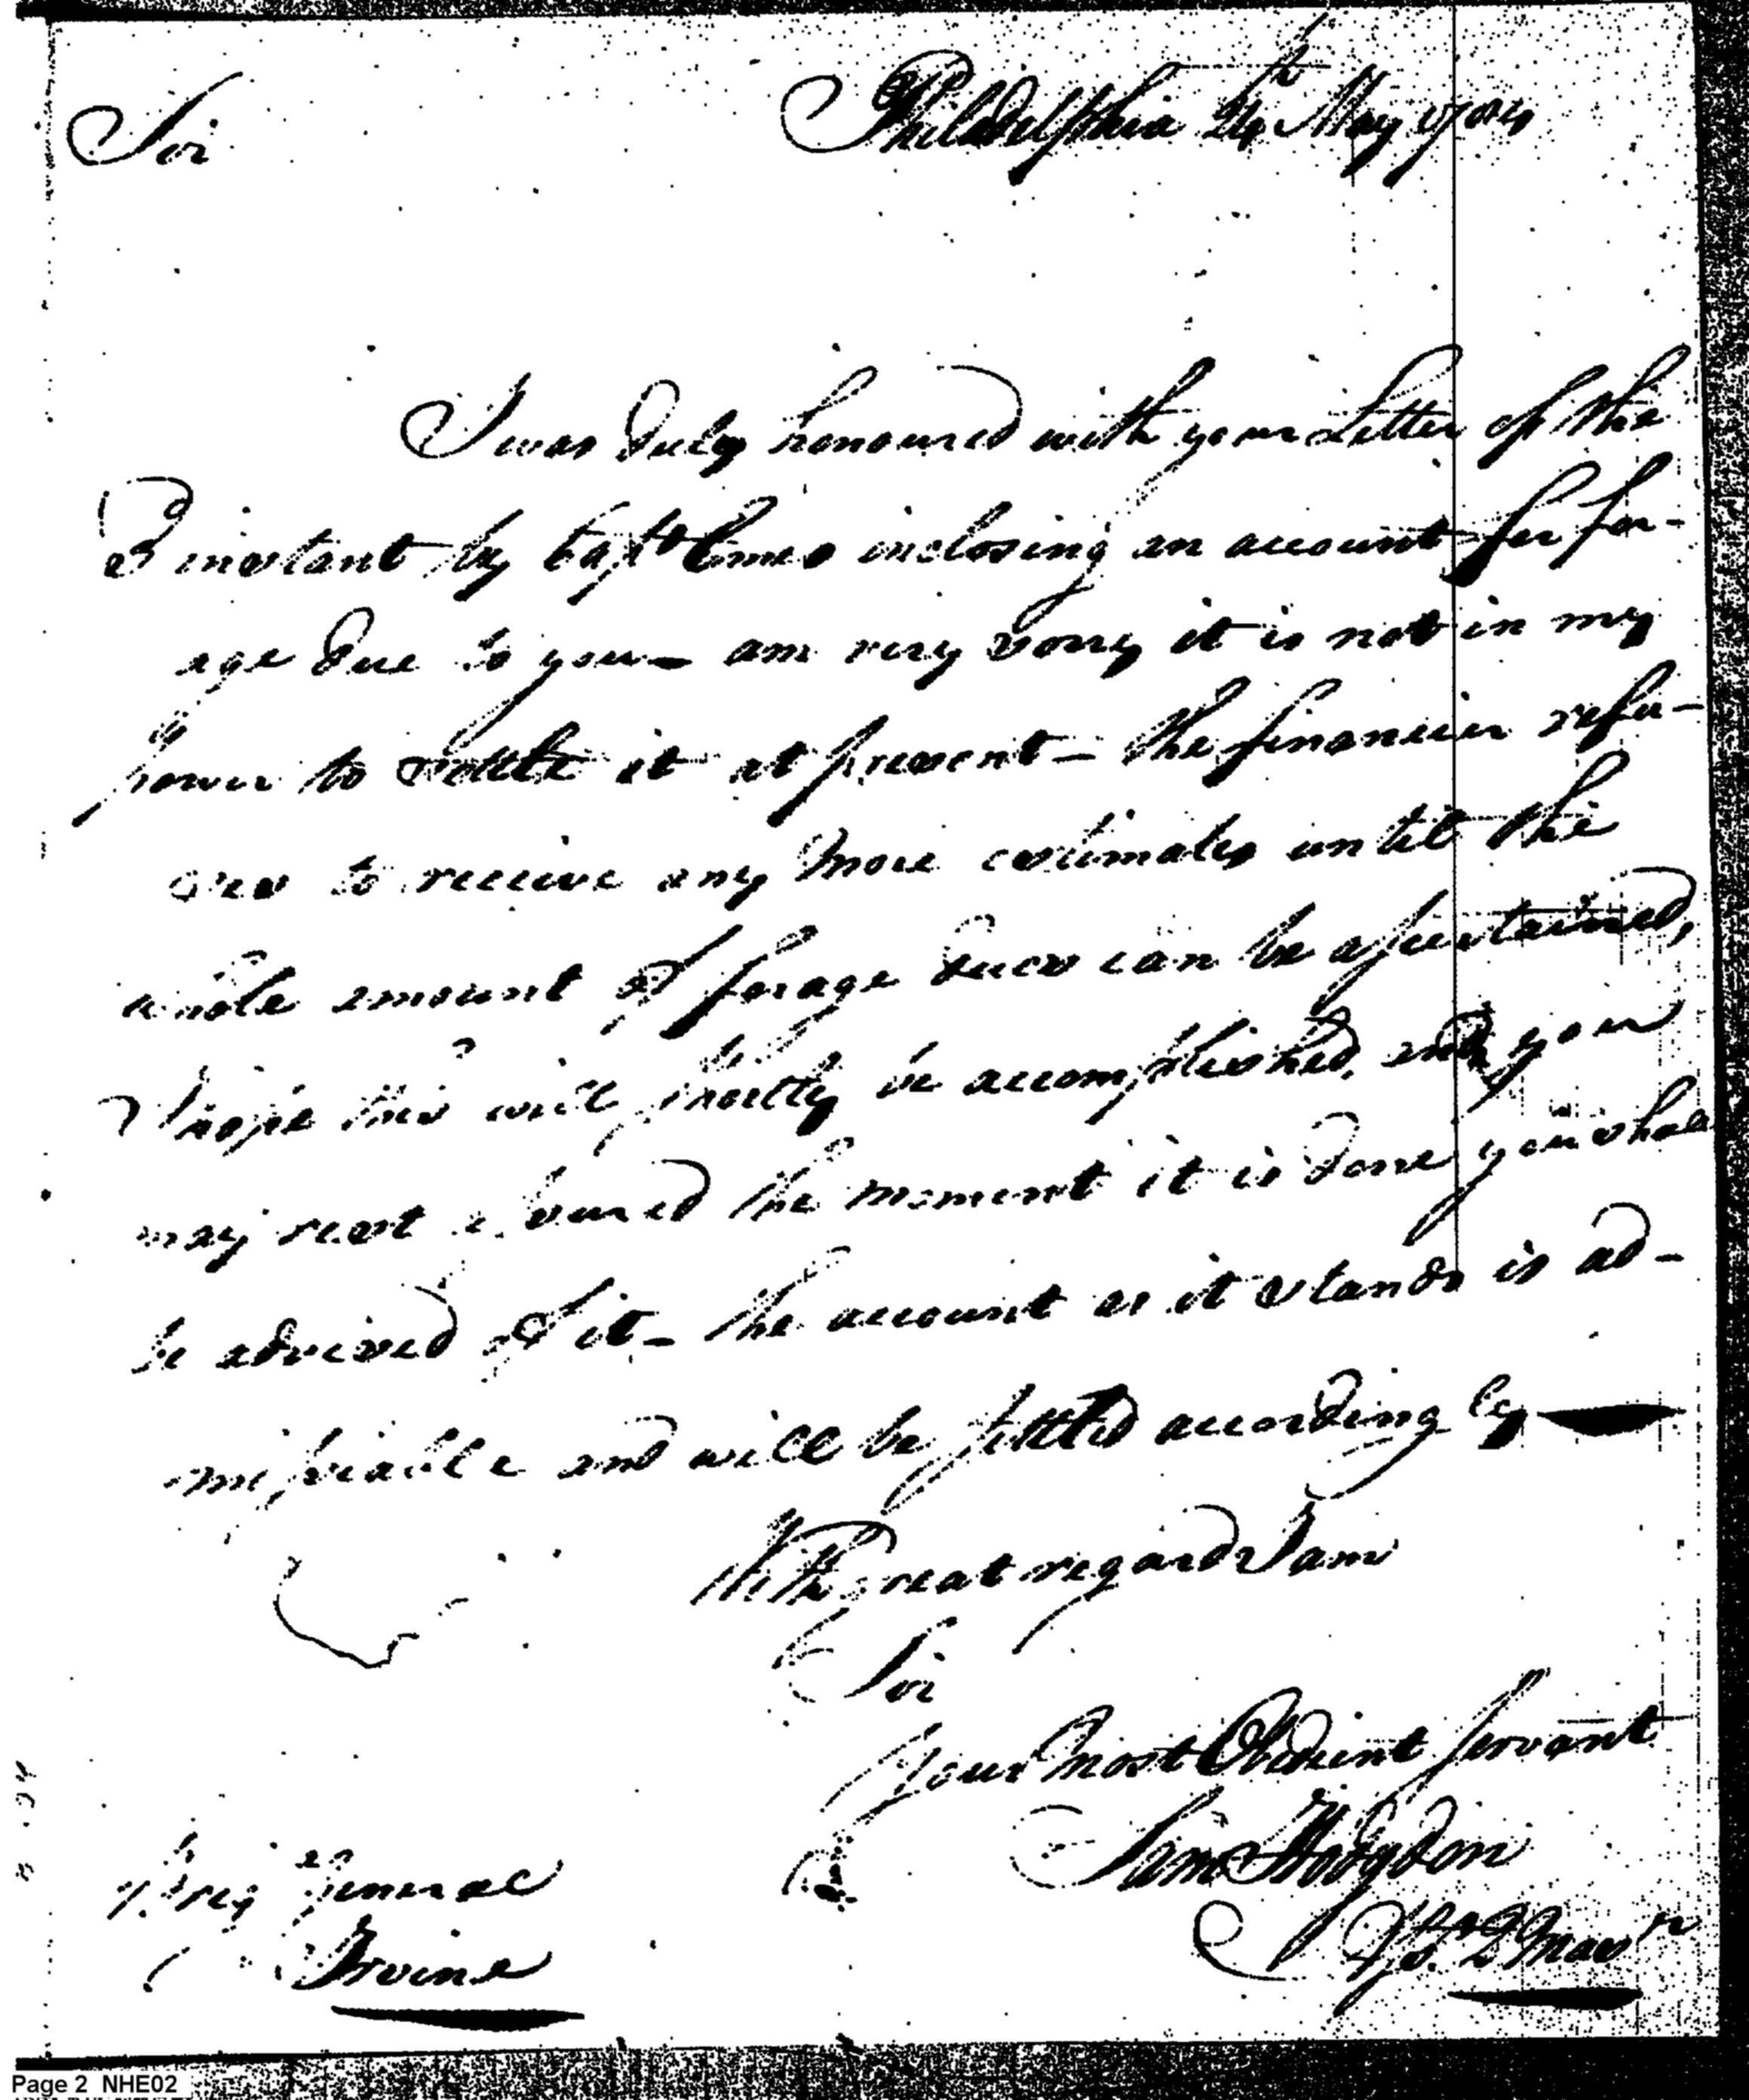 Sir
Philadelphia 24th May 1784
I was duly honoured with your Letter of the
3 instant by Capt inclosing an account for for-
age due to you - am very sorry it is not in my
power to settle it at present - the financier refu-
ses to receive any more estimates until the
whole amount of forage dues can be ascertained,
I hope this will shortly be accomplished, and you
may rest assured the moment it is done you shall
be advised of it - the account as it stands is ad-
missable and will be settled accordingly
With great regard I am
Sir
Your most Obedient Servant
Sam Hodgdon
Brig General
Irvine
Page 2 NHE02